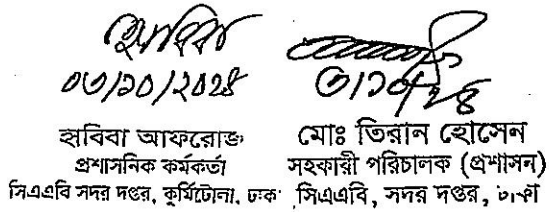 হাবিবা
০৩/১০/২০২৪
হাবিবা আফরোজ
প্রশাসনিক কর্মকর্তা
সিএএবি সদর দপ্তর, কুর্মিটোলা, ঢাকা
৩/১০/২৪
মোঃ তিরান হোসেন
সহকারী পরিচালক (প্রশাসন)
সিএএবি, সদর দপ্তর, ঢাকা